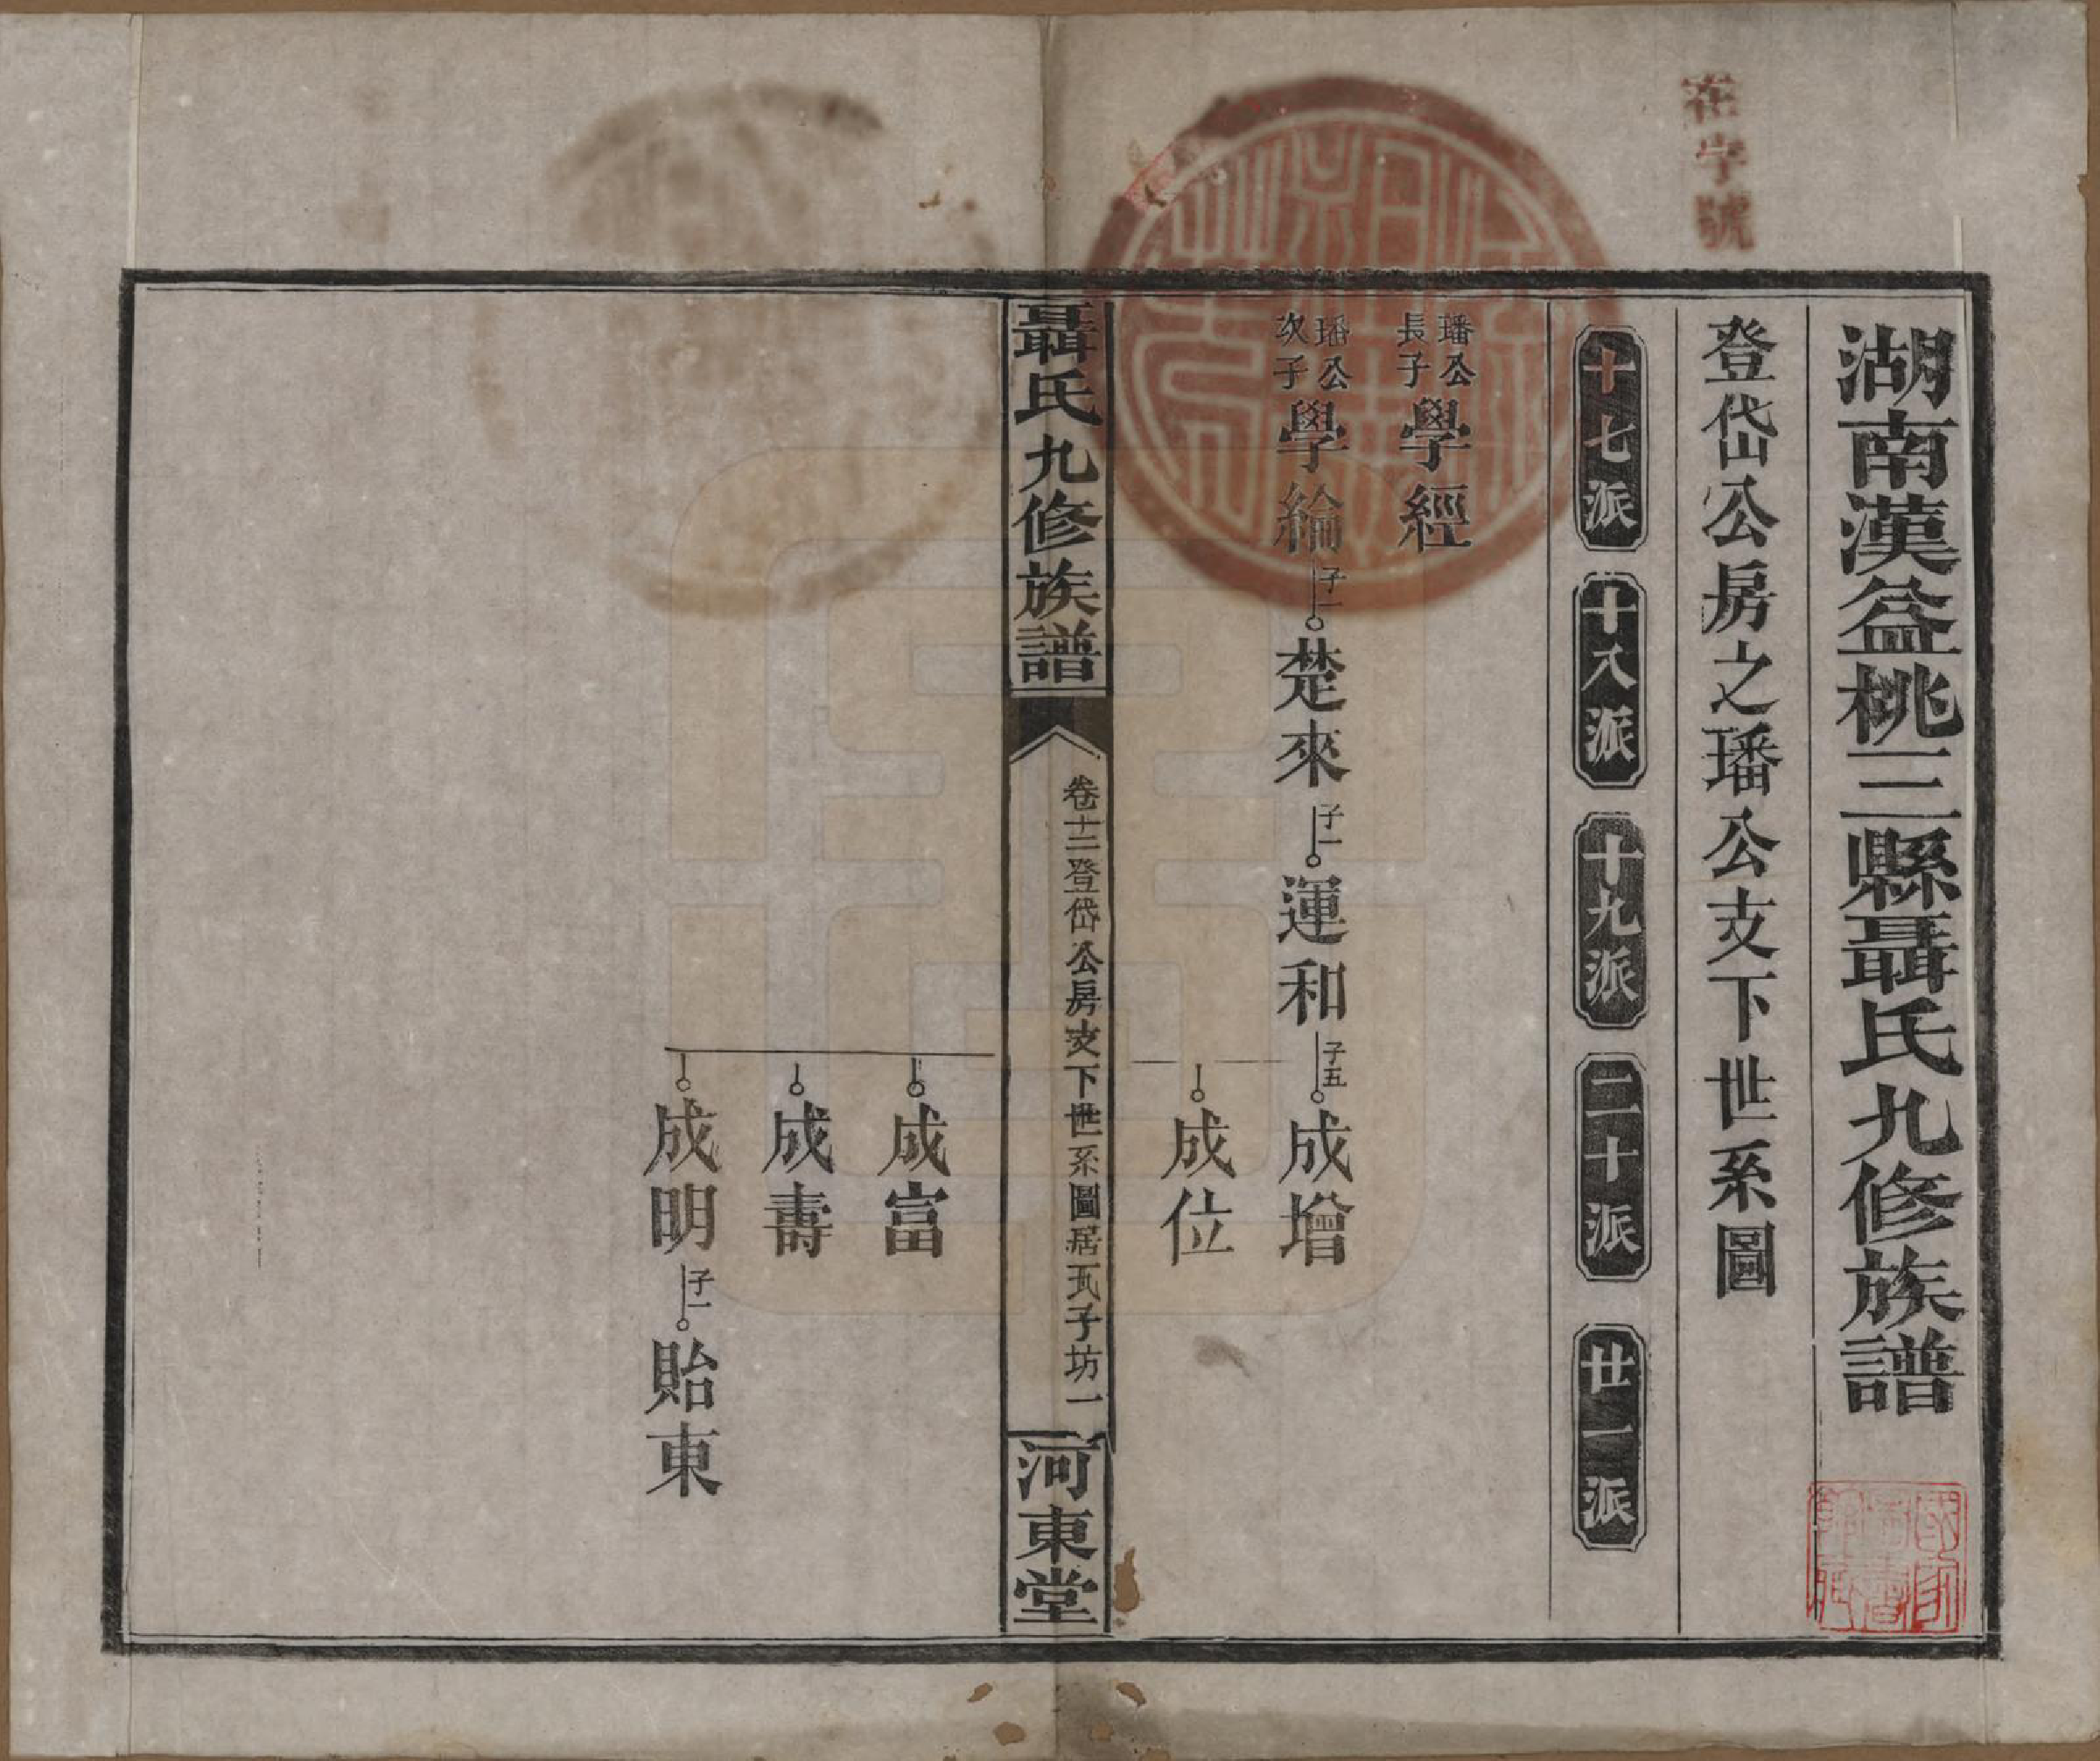 湖南漢益桃三縣聶氏九修族譜
登岱公房之璠公支下世系圖
十七派 十八派 十九派 二十派 廿一派
璠公長子 學經
璠公次子 學綸 子一 楚來 子一 運和 子五 成增
成位
聶氏九修族譜 卷十二登岱公房支下世系圖居瓦子坊一 河東堂
成富
成壽
成明 子一 貽東
字號